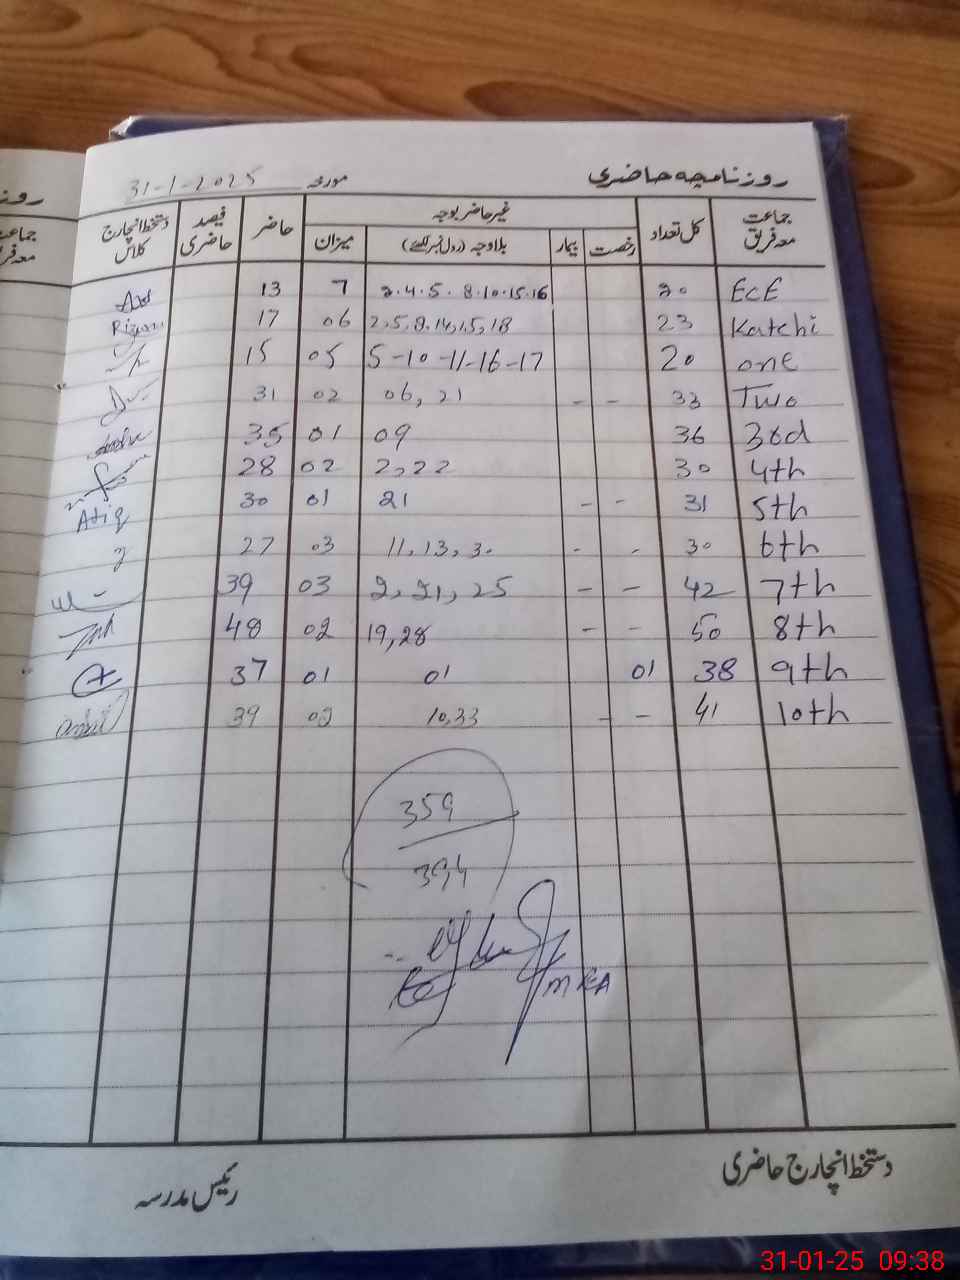 روزنامچہ حاضری مورخہ 31-1-2025
جماعت معہ فریق کل تعداد غیر حاضر بوجہ حاضر فیصد حاضری دستخط انچارج کلاس
رخصت بیمار بلاوجہ (رول نمبر لکھئے) میزان
ECE 20 2.4.5. 8.10.15.16 7 13
Katchi 23 2,5,9,14,15,18 06 17
one 20 5-10-11-16-17 05 15
Two 33 - - 06, 21 02 31
3rd 36 09 01 35
4th 30 2,22 02 28
5th 31 - - 21 01 30 Atiq
6th 30 - - 11, 13, 30 03 27
7th 42 - - 2, 21, 25 03 39
8th 50 - - 19,28 02 48
9th 38 01 01 01 37
10th 41 - - 10,33 02 39
359
394
دستخط انچارج حاضری رئیس مدرسہ
روز
جماعت
معہ فر
31-01-25 09:38